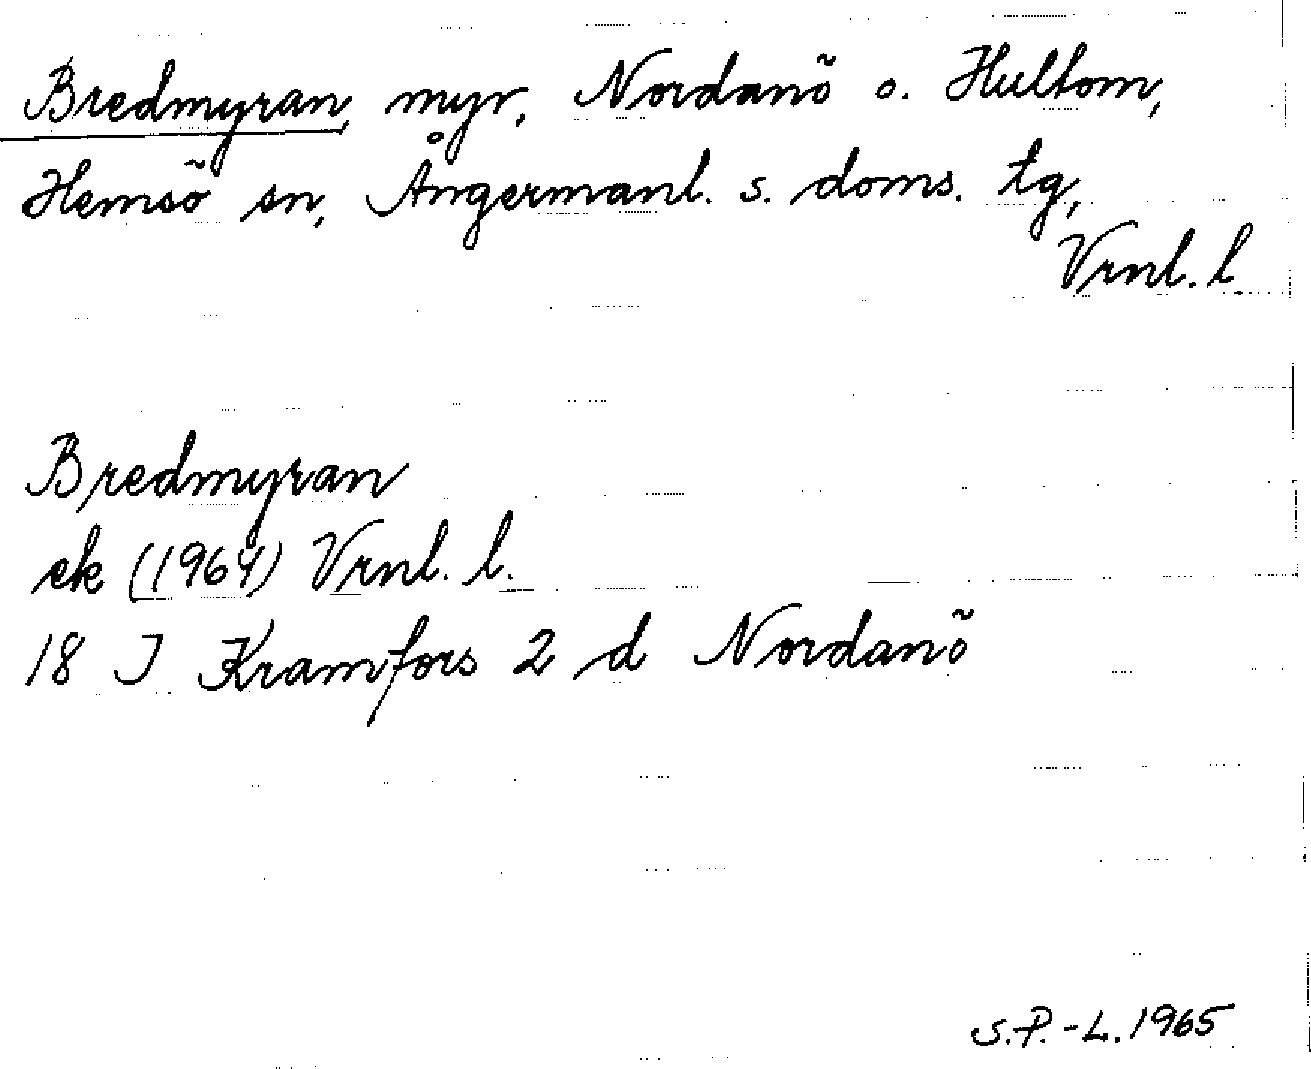 Bredmyran, myr, Nordanö o. Hultom,
Hemsö sn, Ångermanl. s. doms. tg,
Vrnl. l.
Bredmyran
ek (1964) Vrnl. l.
18 J Kramfors 2 d Nordanö
S.P.-L. 1965